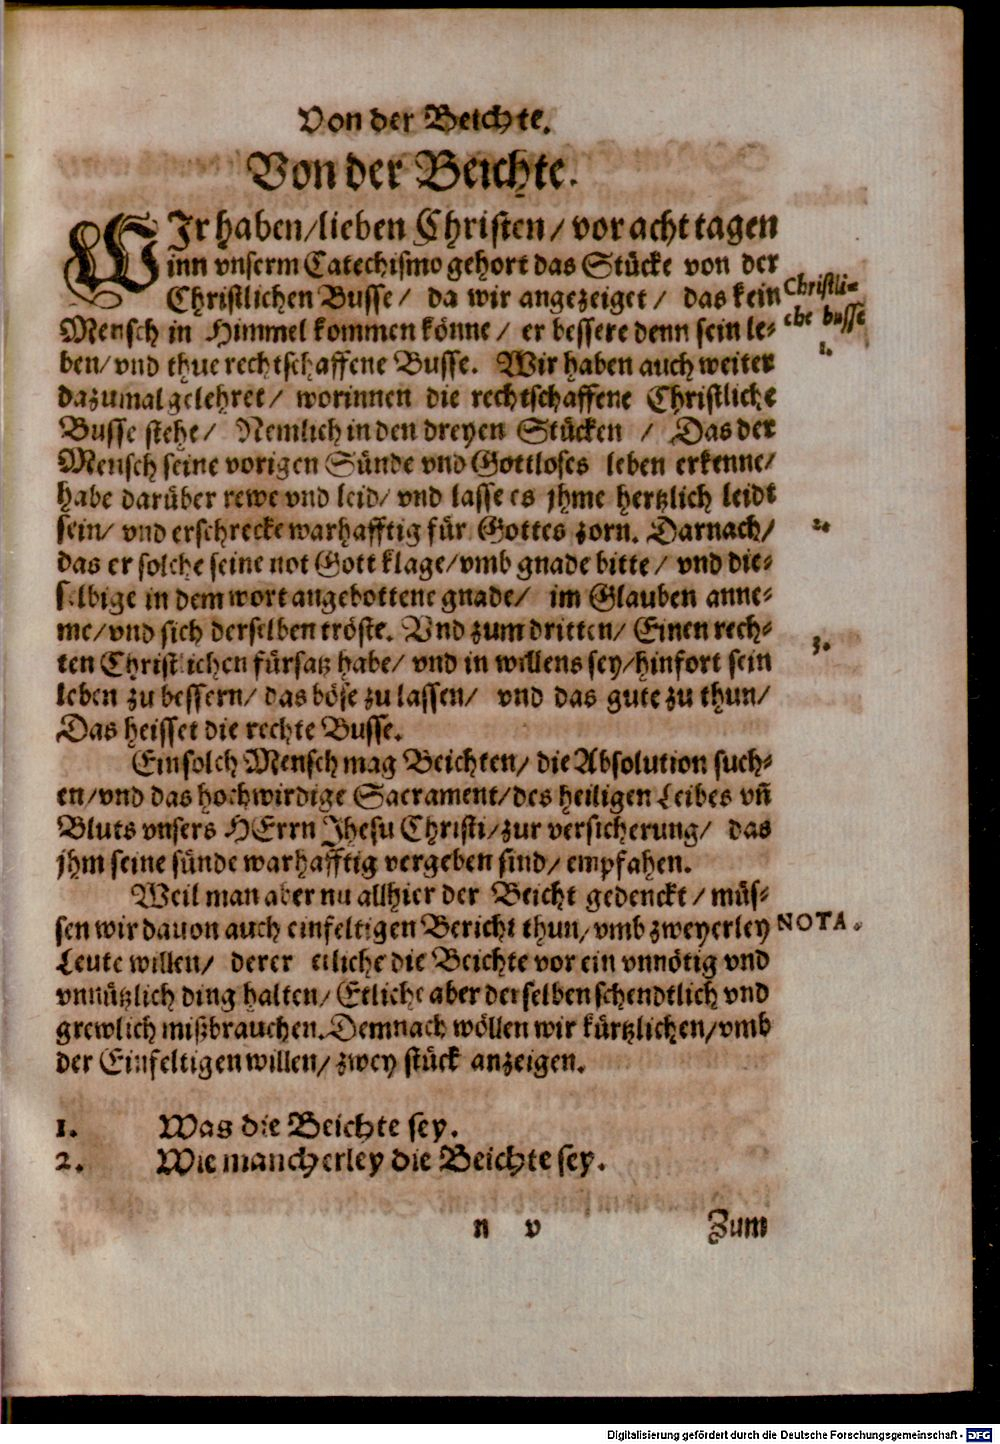 Von der Beichte.
Von der Beichte.
WIr haben/lieben Christen/ vor acht tagen
inn vnserm Catechismo gehort das Stücke von der
Christlichen Busse/ da wir angezeiget/ das kein
Mensch in Himmel kommen könne/ er bessere denn sein le-
ben/ vnd thue rechtschaffene Busse. Wir haben auch weiter
dazumal gelehret/ worinnen die rechtschaffene Christliche
Busse stehe/ Nemlich in den dreyen Stücken / Das der
Mensch seine vorigen Sünde vnd Gottloses leben erkenne/
habe darüber rewe vnd leid/ vnd lasse es jhme hertzlich leidt
sein/ vnd erschrecke warhafftig für Gottes zorn. Darnach/
das er solche seine not Gott klage/vmb gnade bitte/ vnd die-
selbige in dem wort angebottene gnade/ im Glauben anne-
me/vnd sich derselben tröste. Vnd zum dritten/ Einen rech-
ten Christlichen fürsatz habe/ vnd in willens sey/hinfort sein
leben zu bessern/ das böse zu lassen/ vnd das gute zu thun/
Das heisset die rechte Busse.
Ein solch Mensch mag Beichten/ die Absolution such-
en/vnd das hochwirdige Sacrament/des heiligen Leibes vñ
Bluts vnsers HErrn Jhesu Christi/zur versicherung/ das
jhm seine sünde warhafftig vergeben sind/ empfahen.
Weil man aber nu allhier der Beicht gedenckt/ müs-
sen wir dauon auch einfeltigen Bericht thun/ vmb zweyerley
Leute willen/ derer etliche die Beichte vor ein vnnötig vnd
vnnützlich ding halten/ Etliche aber derselben schendtlich vnd
grewlich mißbrauchen. Demnach wöllen wir kürtzlichen/vmb
der Einfeltigen willen/ zwey stück anzeigen.
1. Was die Beichte sey.
2. Wie mancherley die Beichte sey.
n v Zum
Christli-
che busse
1.
2.
3.
NOTA.
Digitalisierung gefördert durch die Deutsche Forschungsgemeinschaft - DFG